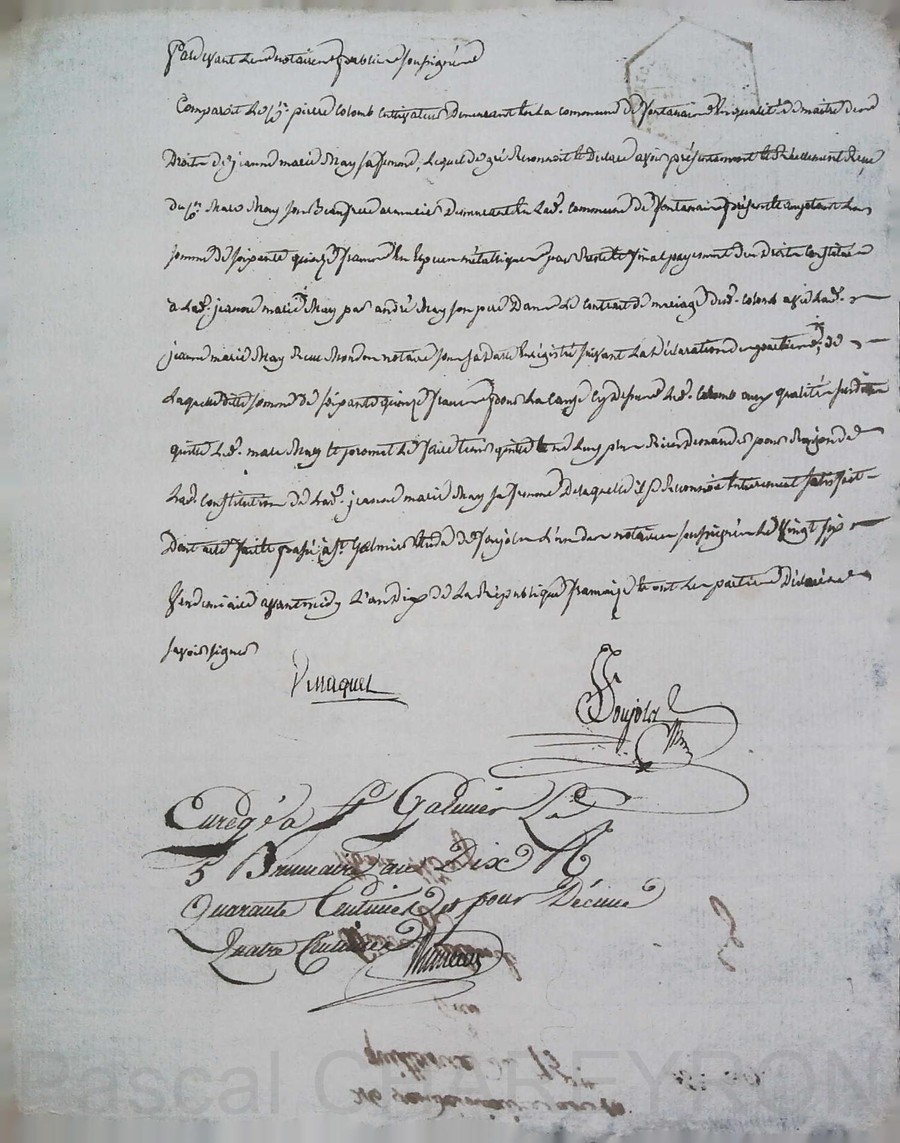 Pardevant les notaires publics soussignés
Comparoit le Cn. pierre Colomb Cultivateur Demeurant En La commune de fontanès En qualité de maitre des
Droits de jeanne marie May sa femme, Lequel de gré Reconnoit et Declare avoir présentement et Réellement Reçu
du Cn. Marc May son Beaufrere Demeurant En Lad. commune de fontanès présent et acceptant La
somme de soixante quinze francs En Espèces métalliques pour Reste et final payement des Droits Constitués
a Lad. jeanne marie May par andré May son pere Dans Le contrat de mariage dud. Colomb avec Lad.
jeanne marie May Reçu notaire sous sa Date Enregistré suivant La déclaration des parties, de
Laquelle ditte somme de soixante quinze francs pour La cause Cy dessus Led. Colomb aux qualités susdites
quitte Led. marc May et promet Le faire tenir quitte et ne Luy plus Rien demander pour Raison de
Lad. constitution de Lad. jeanne marie May sa femme De laquelle il se Reconnoit Entierement satisfait
Dont acte fait et passé à St. Galmier Etude de Poujolas L'un des notaires soussignés Le Vingt six
Vendemiaire avant midy L'an Dix de La République française et ont Les parties Déclaré ne
savoir signer
Poujolas
Enregé a St Galmier Le
5 Brumaire an Dix R
Quarante Centimes et pour Décime
Quatre Centimes
Pascal CHAREYRON